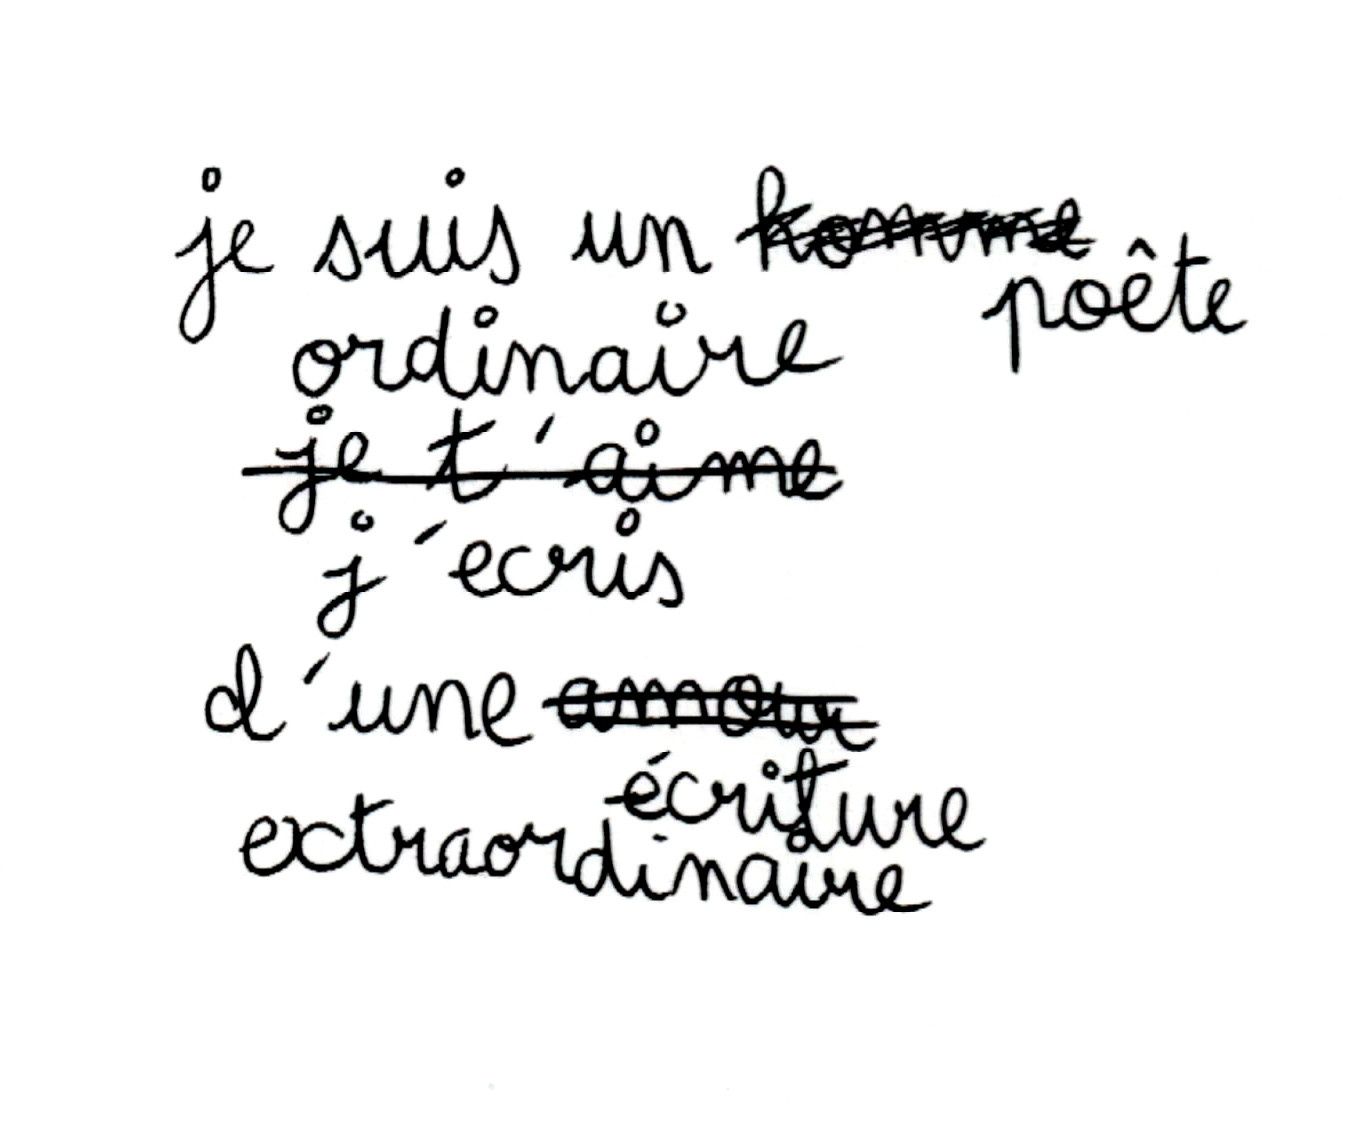 je suis un homme
poête
ordinaire
je t'aime
j'ecris
d'une amour
écriture
extraordinaire